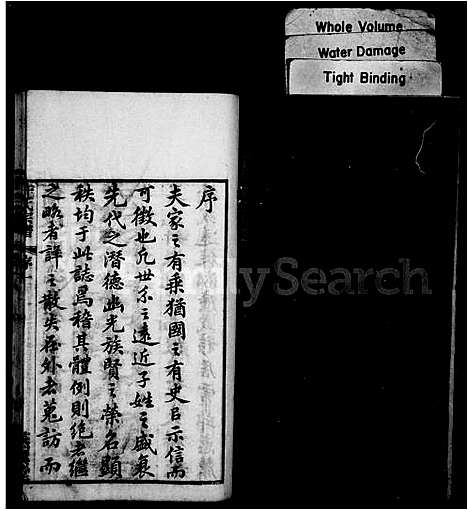 Whole Volume
Water Damage
Tight Binding
序
夫家之有乘猶國之有史臣示信而
可徵也凡世系之遠近子姓之盛衰
先代之潛德幽光族賢之榮名顯
秩均于此誌焉稽其體例則絕者繼
之略者詳之散失在外者蒐訪而
FamilySearch